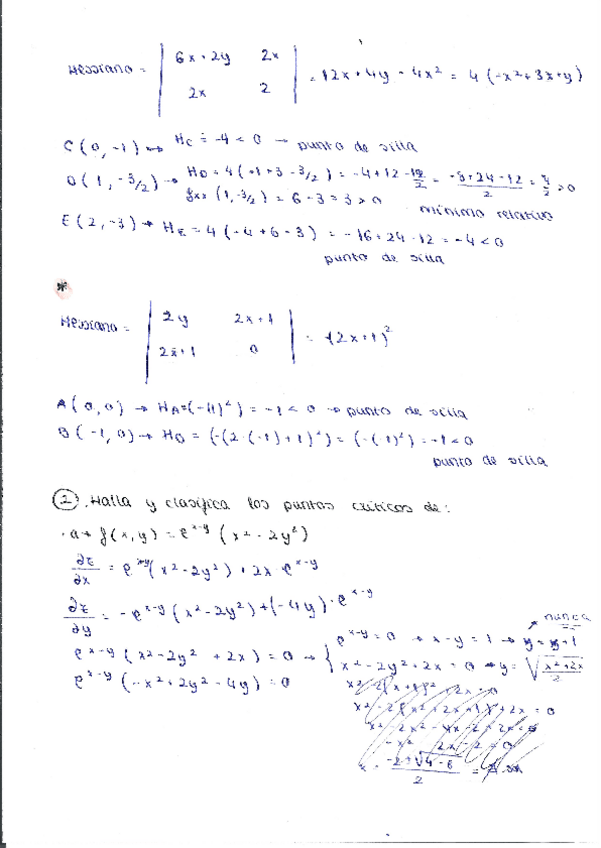 Hessiano = | 6x+2y 2x | = 12x + 4y - 4x² = 4(-x²+3x+y)
| 2x 2 |
C(0,-1) → Hc = -4 < 0 → punto de silla
D(1,-3/2) → HD = 4(-1+3-3/2) = -4+12-12/2 = -8+24-12/2 = 4/2 > 0
fxx(1,-3/2) = 6-3 = 3 > 0 mínimo relativo
E(2,-3) → HE = 4(-4+6-3) = -16+24-12 = -4 < 0
punto de silla
*
Hessiano = | 2y 2x+1 | = -(2x+1)²
| 2x+1 0 |
A(0,0) → HA = (-(1)²) = -1 < 0 → punto de silla
B(-1,0) → HB = (-(2·(-1)+1)²) = (-(-1)²) = -1 < 0
punto de silla
② . Halla y clasifica los puntos críticos de:
·a→ f(x,y) = e^x-y (x²-2y²)
∂z/∂x = e^x-y (x²-2y²) + 2x · e^x-y
∂z/∂y = -e^x-y (x²-2y²) + (-4y) · e^x-y
nunca
e^x-y (x²-2y² + 2x) = 0 → { e^x-y = 0 → x-y = 1 → y = x+1
e^x-y (-x²+2y²-4y) = 0 x²-2y²+2x = 0 → y = √x²+2x/2